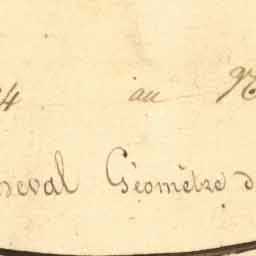 4 au
neval Géomètre d